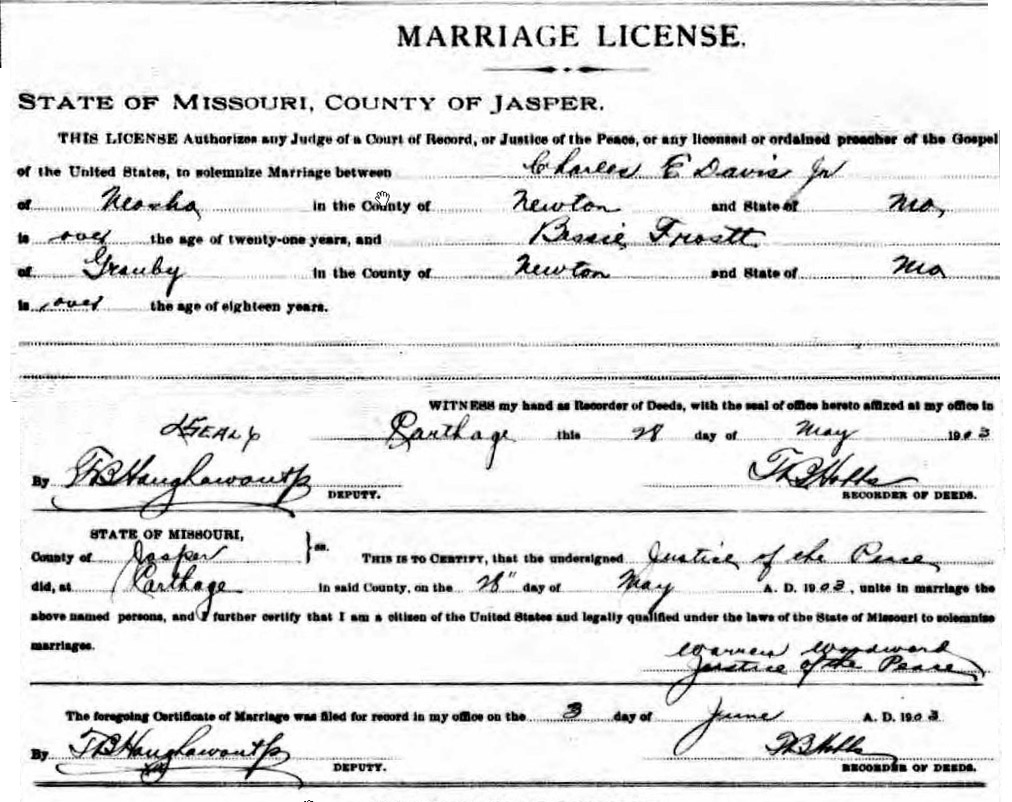 MARRIAGE LICENSE.
STATE OF MISSOURI, COUNTY OF JASPER.
THIS LICENSE Authorizes any Judge of a Court of Record, or Justice of the Peace, or any licensed or ordained preacher of the Gospel
of the United States, to solemnize Marriage between Charles E Davis Jr
of Neosho in the County of Newton and State of Mo,
is over the age of twenty-one years, and Bessie Frostt
of Granby in the County of Newton and State of Mo
is over the age of eighteen years.
WITNESS my hand as Recorder of Deeds, with the seal of office hereto affixed at my office in
SEAL Carthage this 28 day of May 1903
By DEPUTY. RECORDER OF DEEDS.
STATE OF MISSOURI,
County of Jasper } ss. THIS IS TO CERTIFY, that the undersigned Justice of the Peace
did, at Carthage in said County, on the 28" day of May A. D. 1903, unite in marriage the
above named persons, and I further certify that I am a citizen of the United States and legally qualified under the laws of the State of Missouri to solemnize
marriages. Warren Woodward
Justice of the Peace
The foregoing Certificate of Marriage was filed for record in my office on the 3 day of June A. D. 1903
By DEPUTY. RECORDER OF DEEDS.